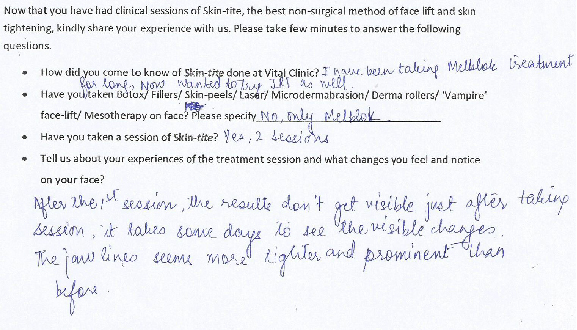 Now that you have had clinical sessions of Skin-tite, the best non-surgical method of face lift and skin
tightening, kindly share your experience with us. Please take few minutes to answer the following
questions.
• How did you come to know of Skin-tite done at Vital Clinic? I have been taking Melblok treatment
for long, Now wanted to try this as well.
• Have you taken Botox/ Fillers/ Skin-peels/ Laser/ Microdermabrasion/ Derma rollers/ 'Vampire'
face-lift/ Mesotherapy on face? Please specify No, only Melblok.
• Have you taken a session of Skin-tite? Yes, 2 sessions
• Tell us about your experiences of the treatment session and what changes you feel and notice
on your face?
After the 1st session, the results don't get visible just after taking
session, it takes some days to see the visible changes.
The jaw lines seems more tighter and prominent than
before.